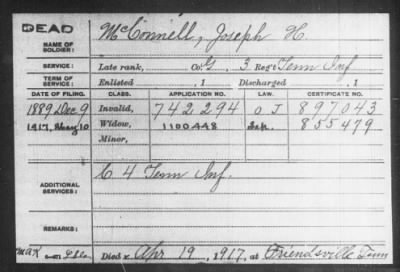 DEAD
McConnell, Joseph H.
NAME OF SOLDIER:
SERVICE: Late rank, Co. G, 3 Reg't Tenn Inf
TERM OF SERVICE: Enlisted , 1 Discharged , 1
DATE OF FILING. CLASS. APPLICATION NO. LAW. CERTIFICATE NO.
1889 Dec 9 Invalid, 742294 O J 897043
1917, May 10 Widow, 1100448 Sep. 855479
Minor,
C 4 Tenn Inf.
ADDITIONAL SERVICES:
REMARKS:
Died Apr 19, 1917, at Friendsville Tenn